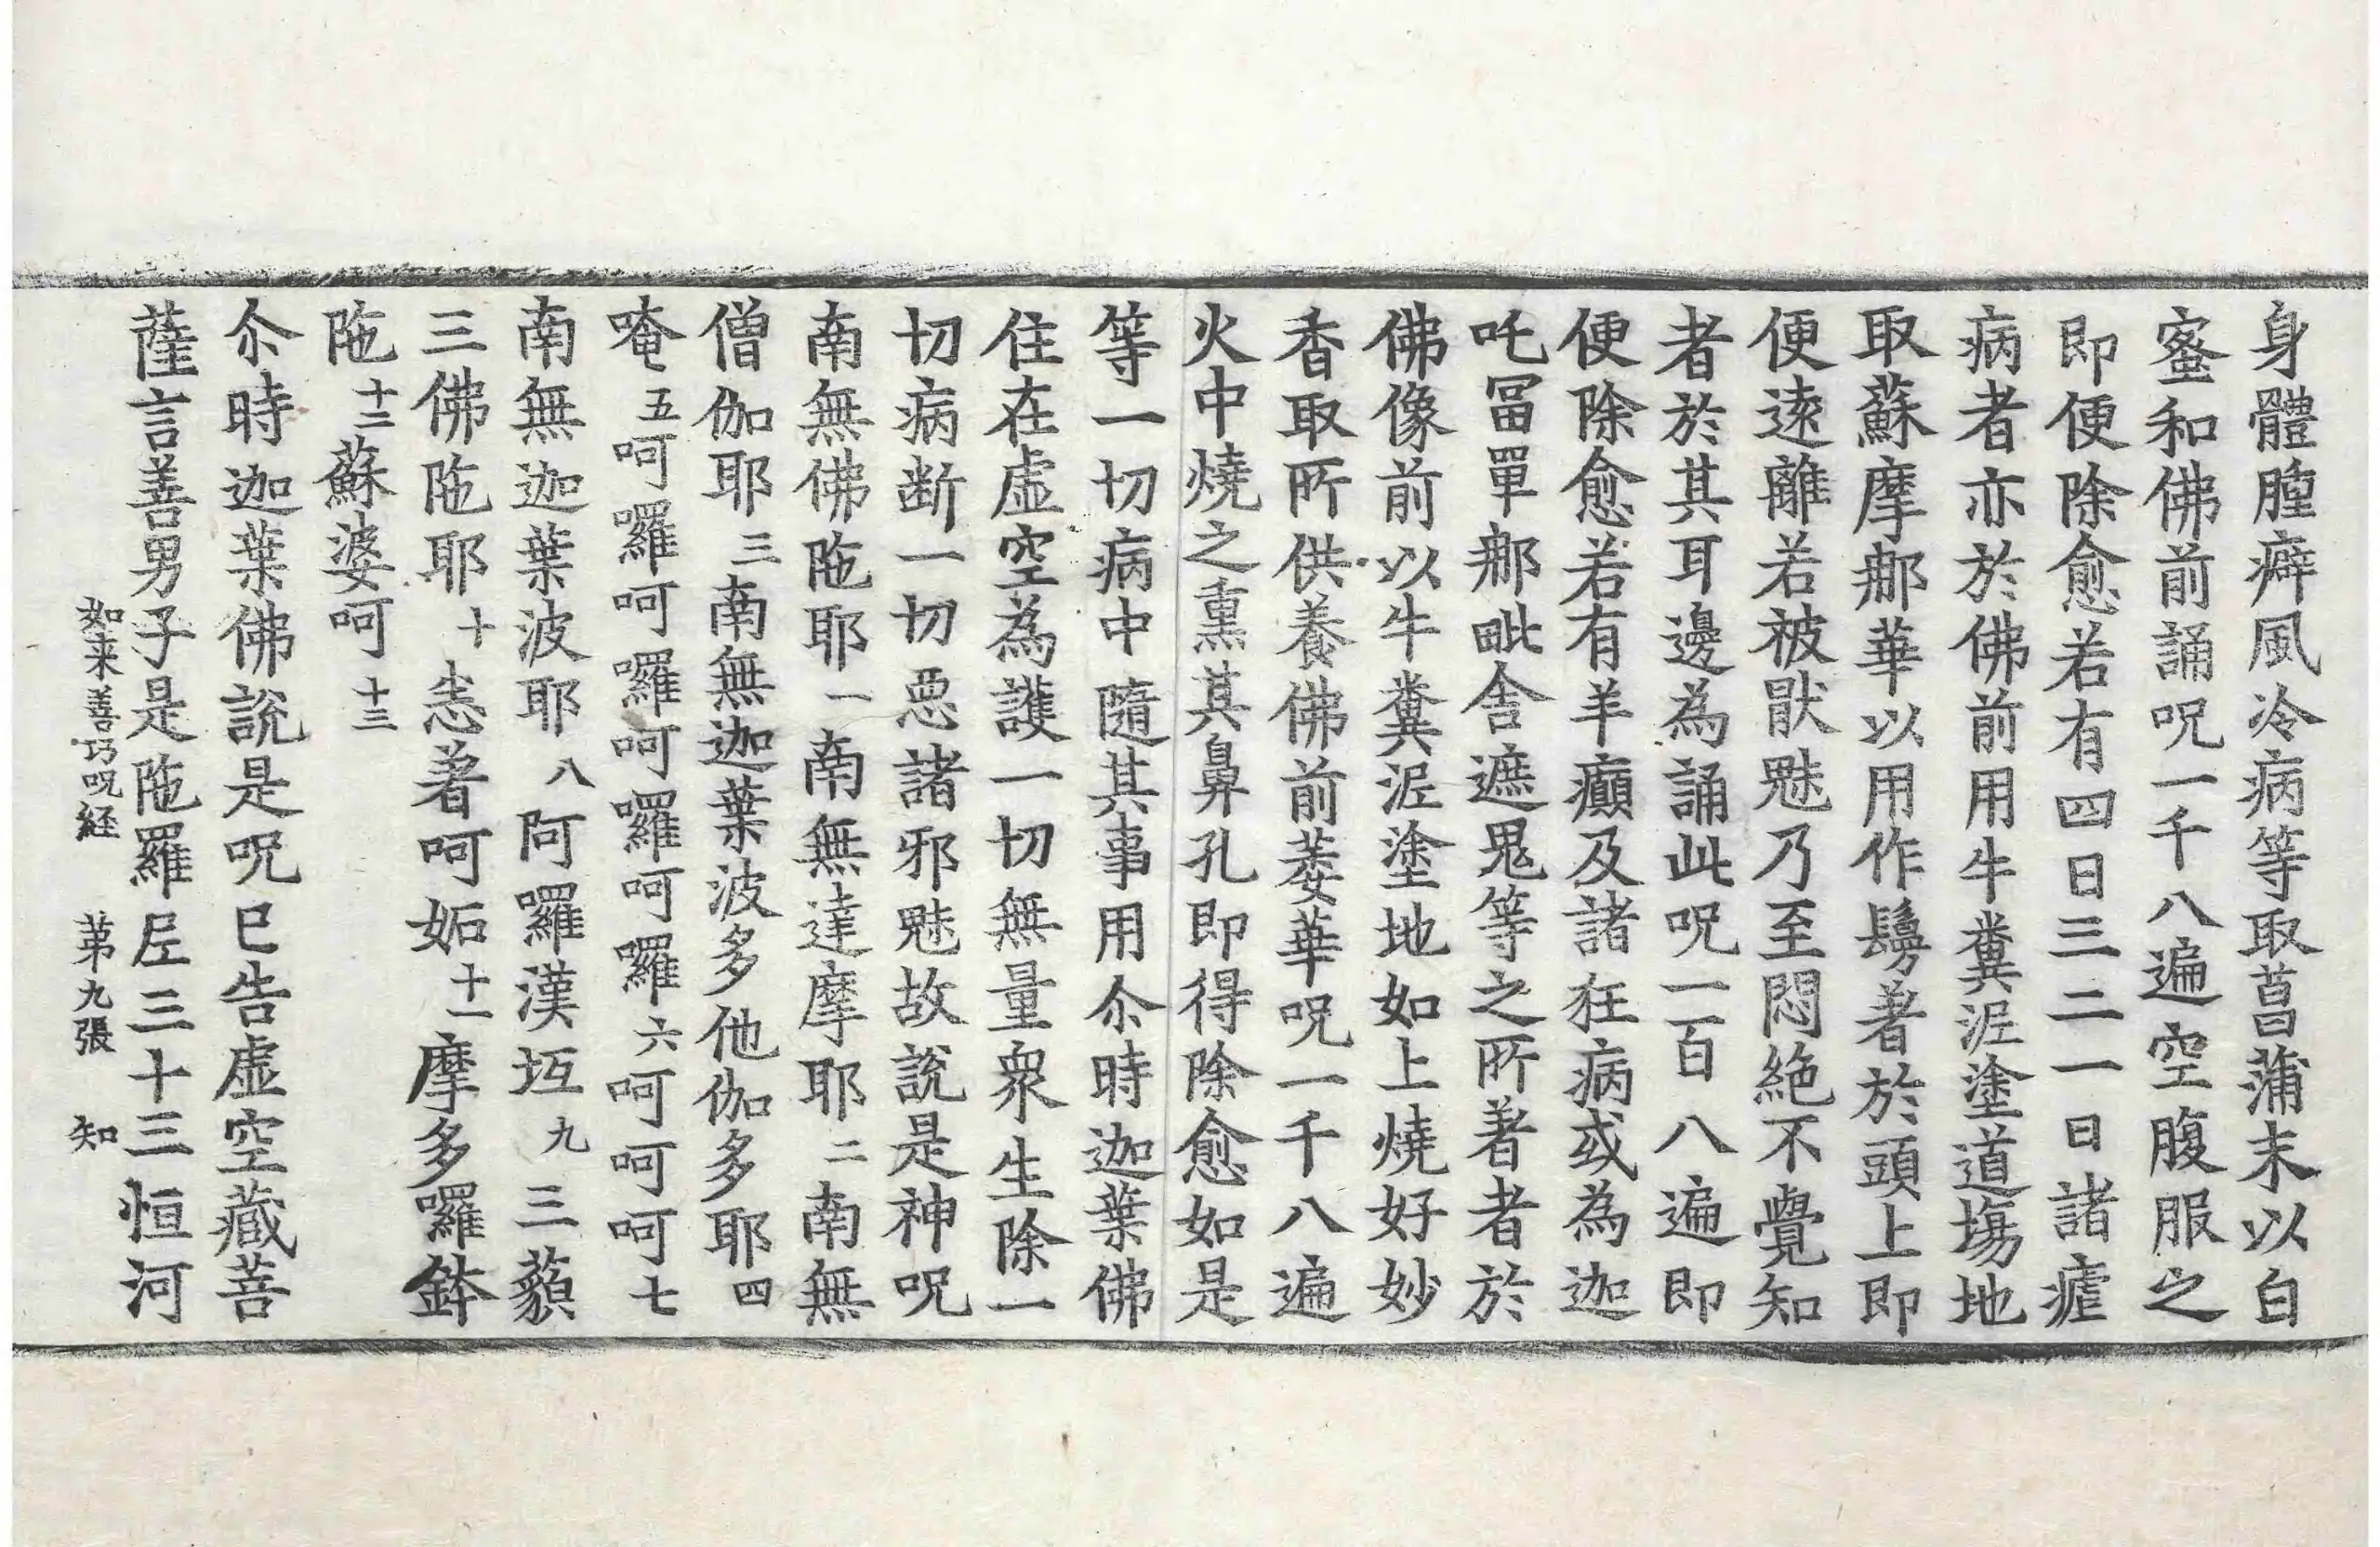 身體腫癖風冷病等取菖蒲末以白
蜜和佛前誦呪一千八遍空腹服之
即便除愈若有四日三二一日諸瘧
病者亦於佛前用牛糞泥塗道場地
取蘇摩郍華以用作鬘著於頭上即
便遠離若被猒魅乃至悶絶不覺知
者於其耳邊為誦此呪一百八遍即
便除愈若有羊癲及諸狂病或為迦
吒冨單郍毗舍遮鬼等之所著者於
佛像前以牛糞泥塗地如上燒好妙
香取所供養佛前萎華呪一千八遍
火中燒之熏其鼻孔即得除愈如是
等一切病中隨其事用尒時迦葉佛
住在虛空為護一切無量衆生除一
切病断一切惡諸邪魅故說是神呪
南無佛陁耶一南無達摩耶二南無
僧伽耶三南無迦葉波多他伽多耶四
唵五呵囉呵囉呵囉呵囉六呵呵呵七
南無迦葉波耶八阿囉漢坘九三藐
三佛陁耶十悉著呵妬十一摩多囉鉢
陁十二蘇婆呵十三
尒時迦葉佛說是呪已告虛空藏菩
薩言善男子是陁羅尼三十三恒河
如来善巧呪経 苐九張 知